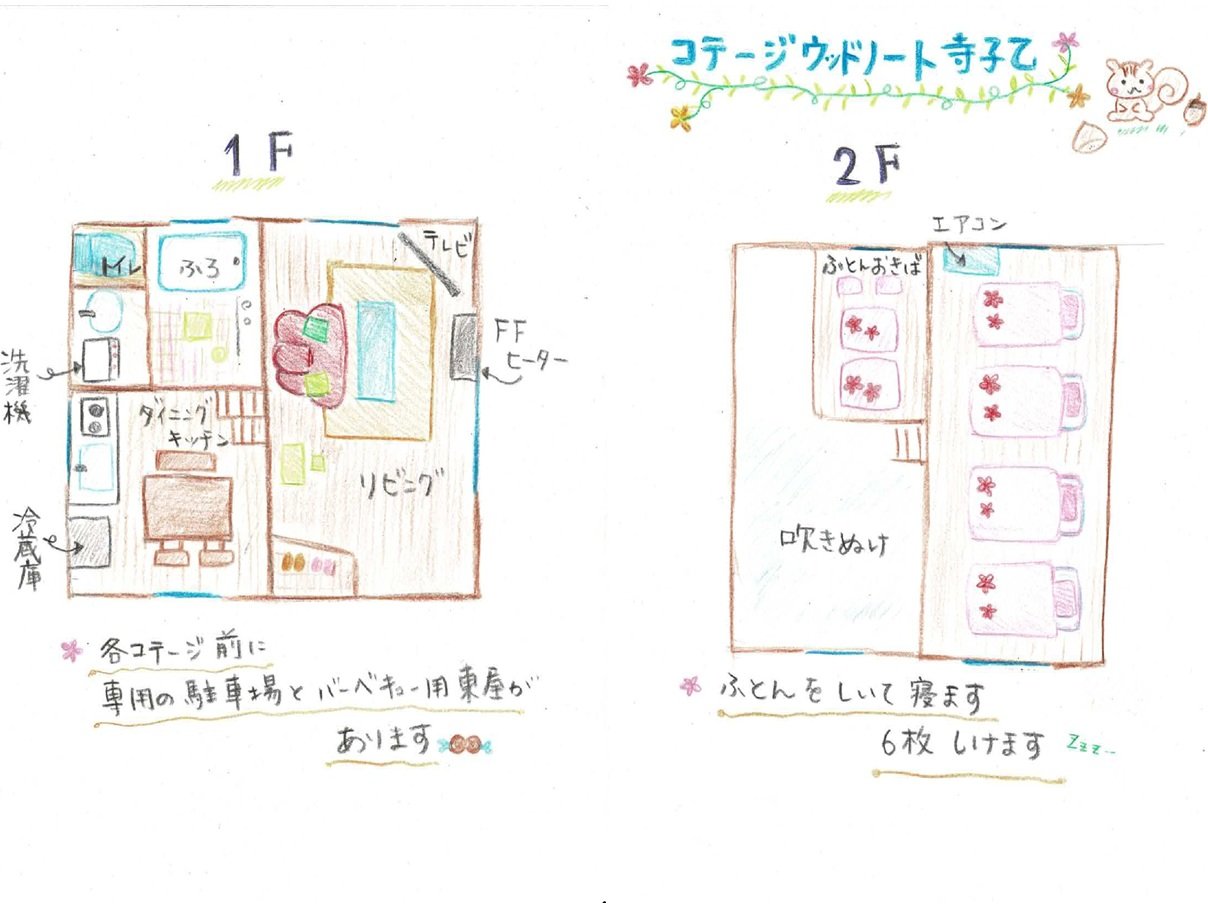 コテージウッドノート寺子乙
1F
トイレ
ふろ
テレビ
FF
ヒーター
洗濯機
ダイニング
キッチン
リビング
冷蔵庫
各コテージ前に
専用の駐車場とバーベキュー用東屋が
あります
2F
エアコン
ふとんおきば
吹きぬけ
ふとんをしいて寝ます
6枚しけます zzz--